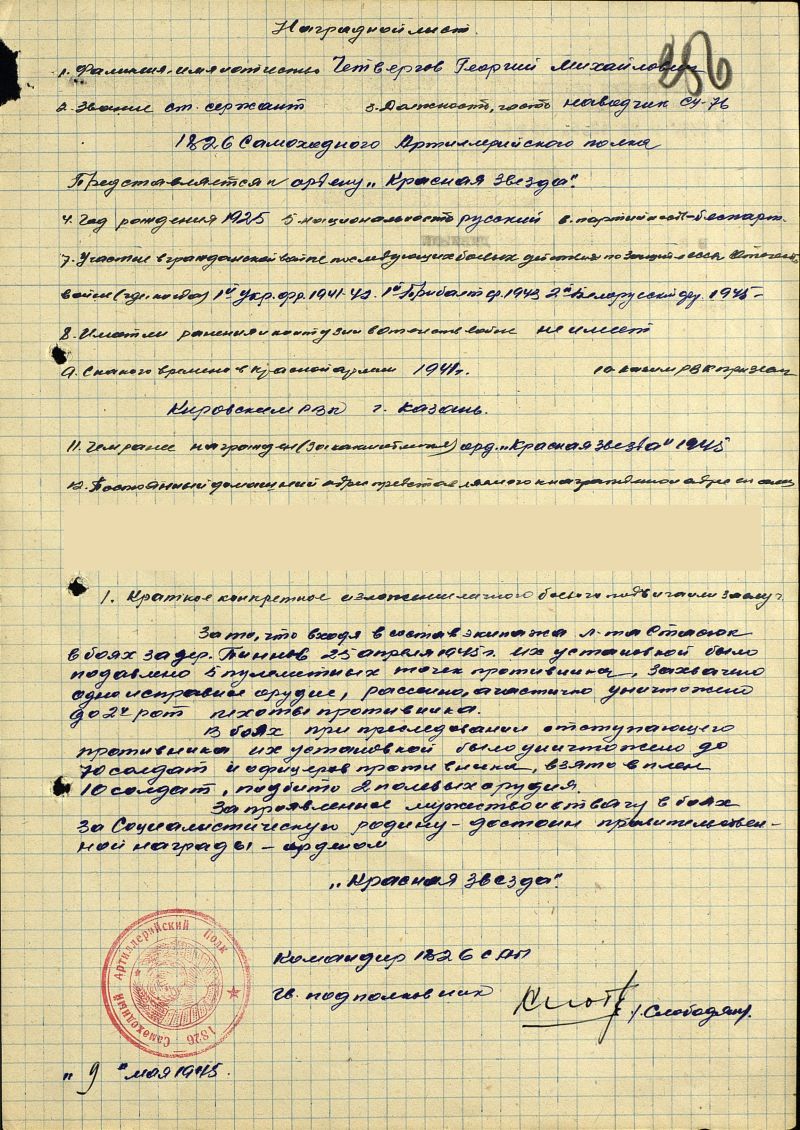 Наградной лист.
256
1. Фамилия, имя и отчество Четвергов Георгий Михайлович
2. Звание ст. сержант 3. Должность, часть наводчик СУ-76
1826 Самоходного Артиллерийского полка
Представляется к ордену „Красная Звезда".
4. Год рождения 1925 5 национальность русский 6. партийность - беспарт.
7. Участие в гражданской войне последующих боевых действиях по защите СССР Отечеств.
войне (где, когда) 1й Укр. фр. 1941-42. 1й Прибалт. ф. 1943 2й Белорусский фр. 1945-
8. Имеет ли ранения и контузии в отечеств войне не имеет
9. С какого времени в Красной армии 1941г. 10 каким РВК призван
Кировским РВК г. Казань.
11. Чем ранее награжден (за какие отличия) орд. „Красная Звезда" 1945
12. Постоянный домашний адрес представляемого к награждению и адрес семьи
1. Краткое конкретное изложение личного боевого подвига или заслуг
За то, что входя в состав экипажа л-та Стасюк
в боях за дер. Пиннов 25 апреля 1945 г. их установкой было
подавлено 5 пулеметных точек противника, захвачено
одно исправное орудие, рассеяно, а частично уничтожено
до 2х рот пехоты противника.
В боях при преследовании отступающего
противника их установкой было уничтожено до
70 солдат и офицеров противника, взято в плен
10 солдат, подбито 2 полевых орудия.
За проявленное мужество и отвагу в боях
за Социалистическую родину - достоин правительствен-
ной награды - орденом
„Красная Звезда".
Командир 1826 САП
гв. подполковник
/. Слободян/.
Самоходный Артиллерийский Полк
1826
„ 9 " мая 1945.